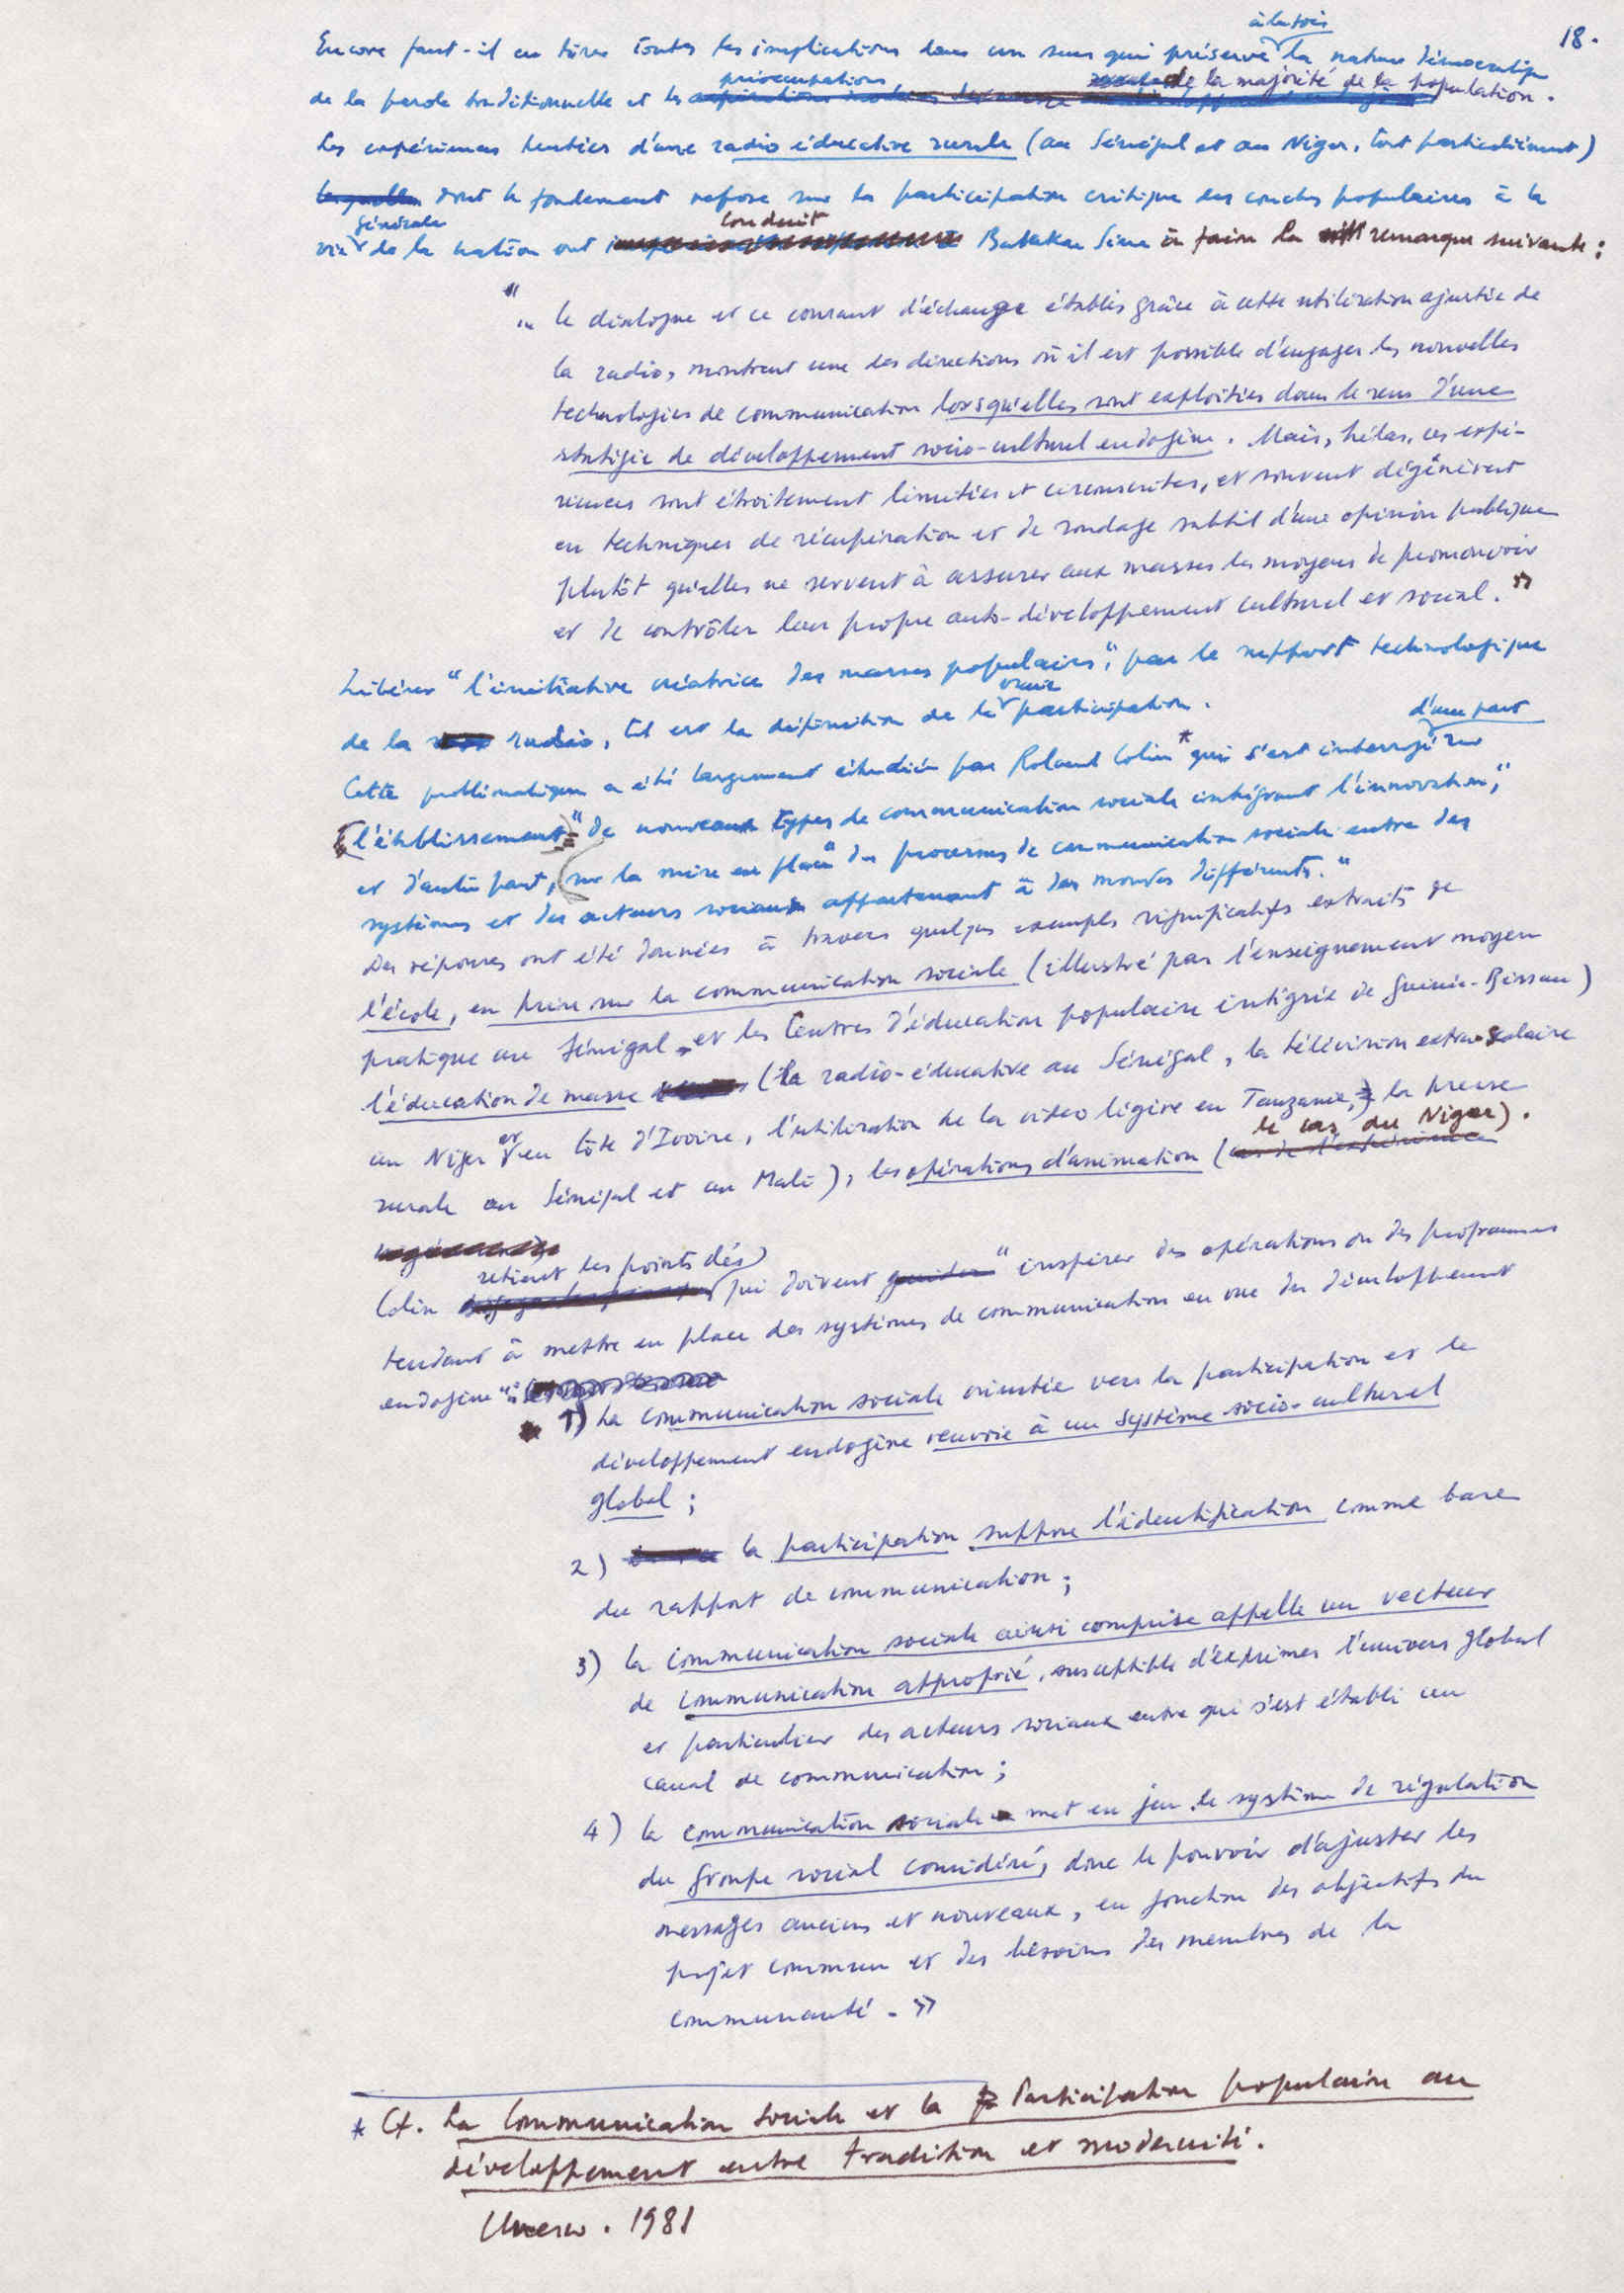 18.
à la fois
Encore faut-il en tirer toutes les implications dans un sens qui préserve la nature démocratique
préoccupations de la majorité de la population.
de la parole traditionnelle et les aspirations modernes
Les expériences tentées d'une radio éducative rurale (au Sénégal et au Niger, tout particulièrement)
lesquelles dont le fondement repose sur la participation critique des couches populaires à la
générale conduit
vie de la nation ont Babakar Sine à faire la remarque suivante :
"... le dialogue et ce courant d'échange établis grâce à cette utilisation ajustée de
la radio, montrent une des directions où il est possible d'engager les nouvelles
technologies de communication lorsqu'elles sont exploitées dans le sens d'une
stratégie de développement socio-culturel endogène. Mais, hélas, ces expé-
riences sont étroitement limitées et circonscrites, et souvent dégénèrent
en techniques de récupération et de sondage subtil d'une opinion publique
plutôt qu'elles ne servent à assurer aux masses les moyens de promouvoir
et de contrôler leur propre auto-développement culturel et social."
Libérer "l'initiative créatrice des masses populaires", par le support technologique
vraie
de la radio, tel est la définition de la participation.
d'une part
Cette problématique a été largement étudiée par Roland Colin * qui s'est interrogé sur
l'établissement "de nouveaux types de communication sociale intégrant l'innovation,"
et d'autre part, sur la mise en place "des processus de communication sociale entre des
systèmes et des acteurs sociaux appartenant à des mondes différents."
Des réponses ont été données à travers quelques exemples significatifs extraits de
l'école, en prise sur la communication sociale (illustré par l'enseignement moyen
pratique au Sénégal, et les Centres d'éducation populaire intégrée de Guinée-Bissau)
l'éducation de masse (la radio-éducative au Sénégal, la télévision extra-scolaire
au Niger et en Côte d'Ivoire, l'utilisation de la vidéo légère en Tanzanie, la presse
le cas du Niger).
rurale au Sénégal et au Mali), les opérations d'animation (cas de l'expérience
nigérienne)
retient les points clés
Colin qui doivent guider "inspirer des opérations ou des programmes
tendant à mettre en place des systèmes de communication en vue du développement
endogène" :
1) La communication sociale orientée vers la participation et le
développement endogène renvoie à un système socio-culturel
global ;
2) la participation suppose l'identification comme base
du rapport de communication ;
3) la communication sociale ainsi comprise appelle un vecteur
de communication approprié, susceptible d'exprimer l'univers global
et particulier des acteurs sociaux entre qui s'est établi un
canal de communication ;
4) la communication sociale met en jeu le système de régulation
du groupe social considéré, donc le pouvoir d'ajuster les
messages anciens et nouveaux, en fonction des objectifs du
projet commun et des besoins des membres de la
communauté. "
* Cf. La Communication Sociale et la Participation populaire au
développement entre tradition et modernité.
Unesco. 1981